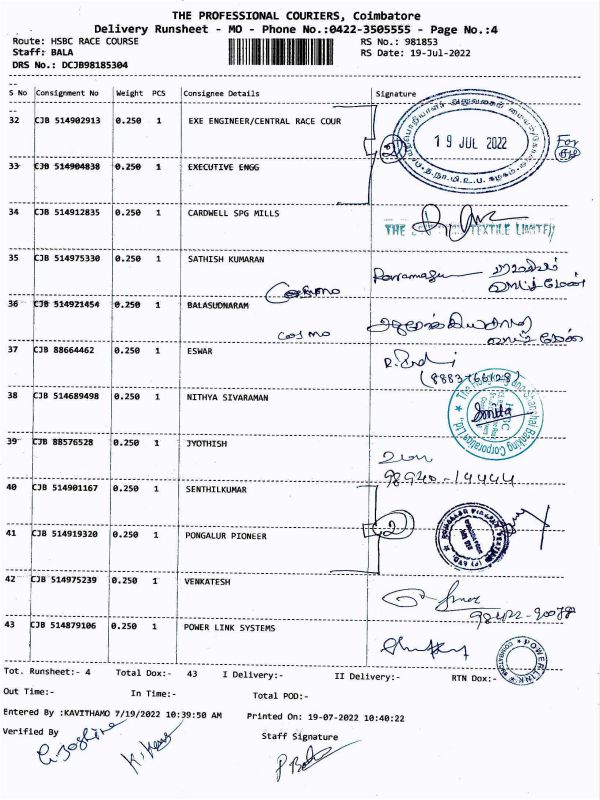 THE PROFESSIONAL COURIERS, Coimbatore
Delivery Runsheet - MO - Phone No.:0422-3505555 - Page No.:4
Route: HSBC RACE COURSE RS No.: 981853
Staff: BALA RS Date: 19-Jul-2022
DRS No.: DCJB98185304
S No Consignment No Weight PCS Consignee Details Signature
32 CJB 514902913 0.250 1 EXE ENGINEER/CENTRAL RACE COUR
19 JUL 2022
For
33 CJB 514904838 0.250 1 EXECUTIVE ENGG
34 CJB 514912835 0.250 1 CARDWELL SPG MILLS
THE TEXTILE LIMITED
35 CJB 514975330 0.250 1 SATHISH KUMARAN
36 CJB 514921454 0.250 1 BALASUDNARAM
37 CJB 88664462 0.250 1 ESWAR
38 CJB 514689498 0.250 1 NITHYA SIVARAMAN
Smita
HSBC
39 CJB 88576528 0.250 1 JYOTHISH
98940-14444
40 CJB 514901167 0.250 1 SENTHILKUMAR
2
41 CJB 514919320 0.250 1 PONGALUR PIONEER
42 CJB 514975239 0.250 1 VENKATESH
43 CJB 514879106 0.250 1 POWER LINK SYSTEMS
POWERLINK
Tot. Runsheet:- 4 Total Dox:- 43 I Delivery:- II Delivery:- RTN Dox:-
Out Time:- In Time:- Total POD:-
Entered By :KAVITHAMO 7/19/2022 10:39:50 AM Printed On: 19-07-2022 10:40:22
Verified By Staff Signature